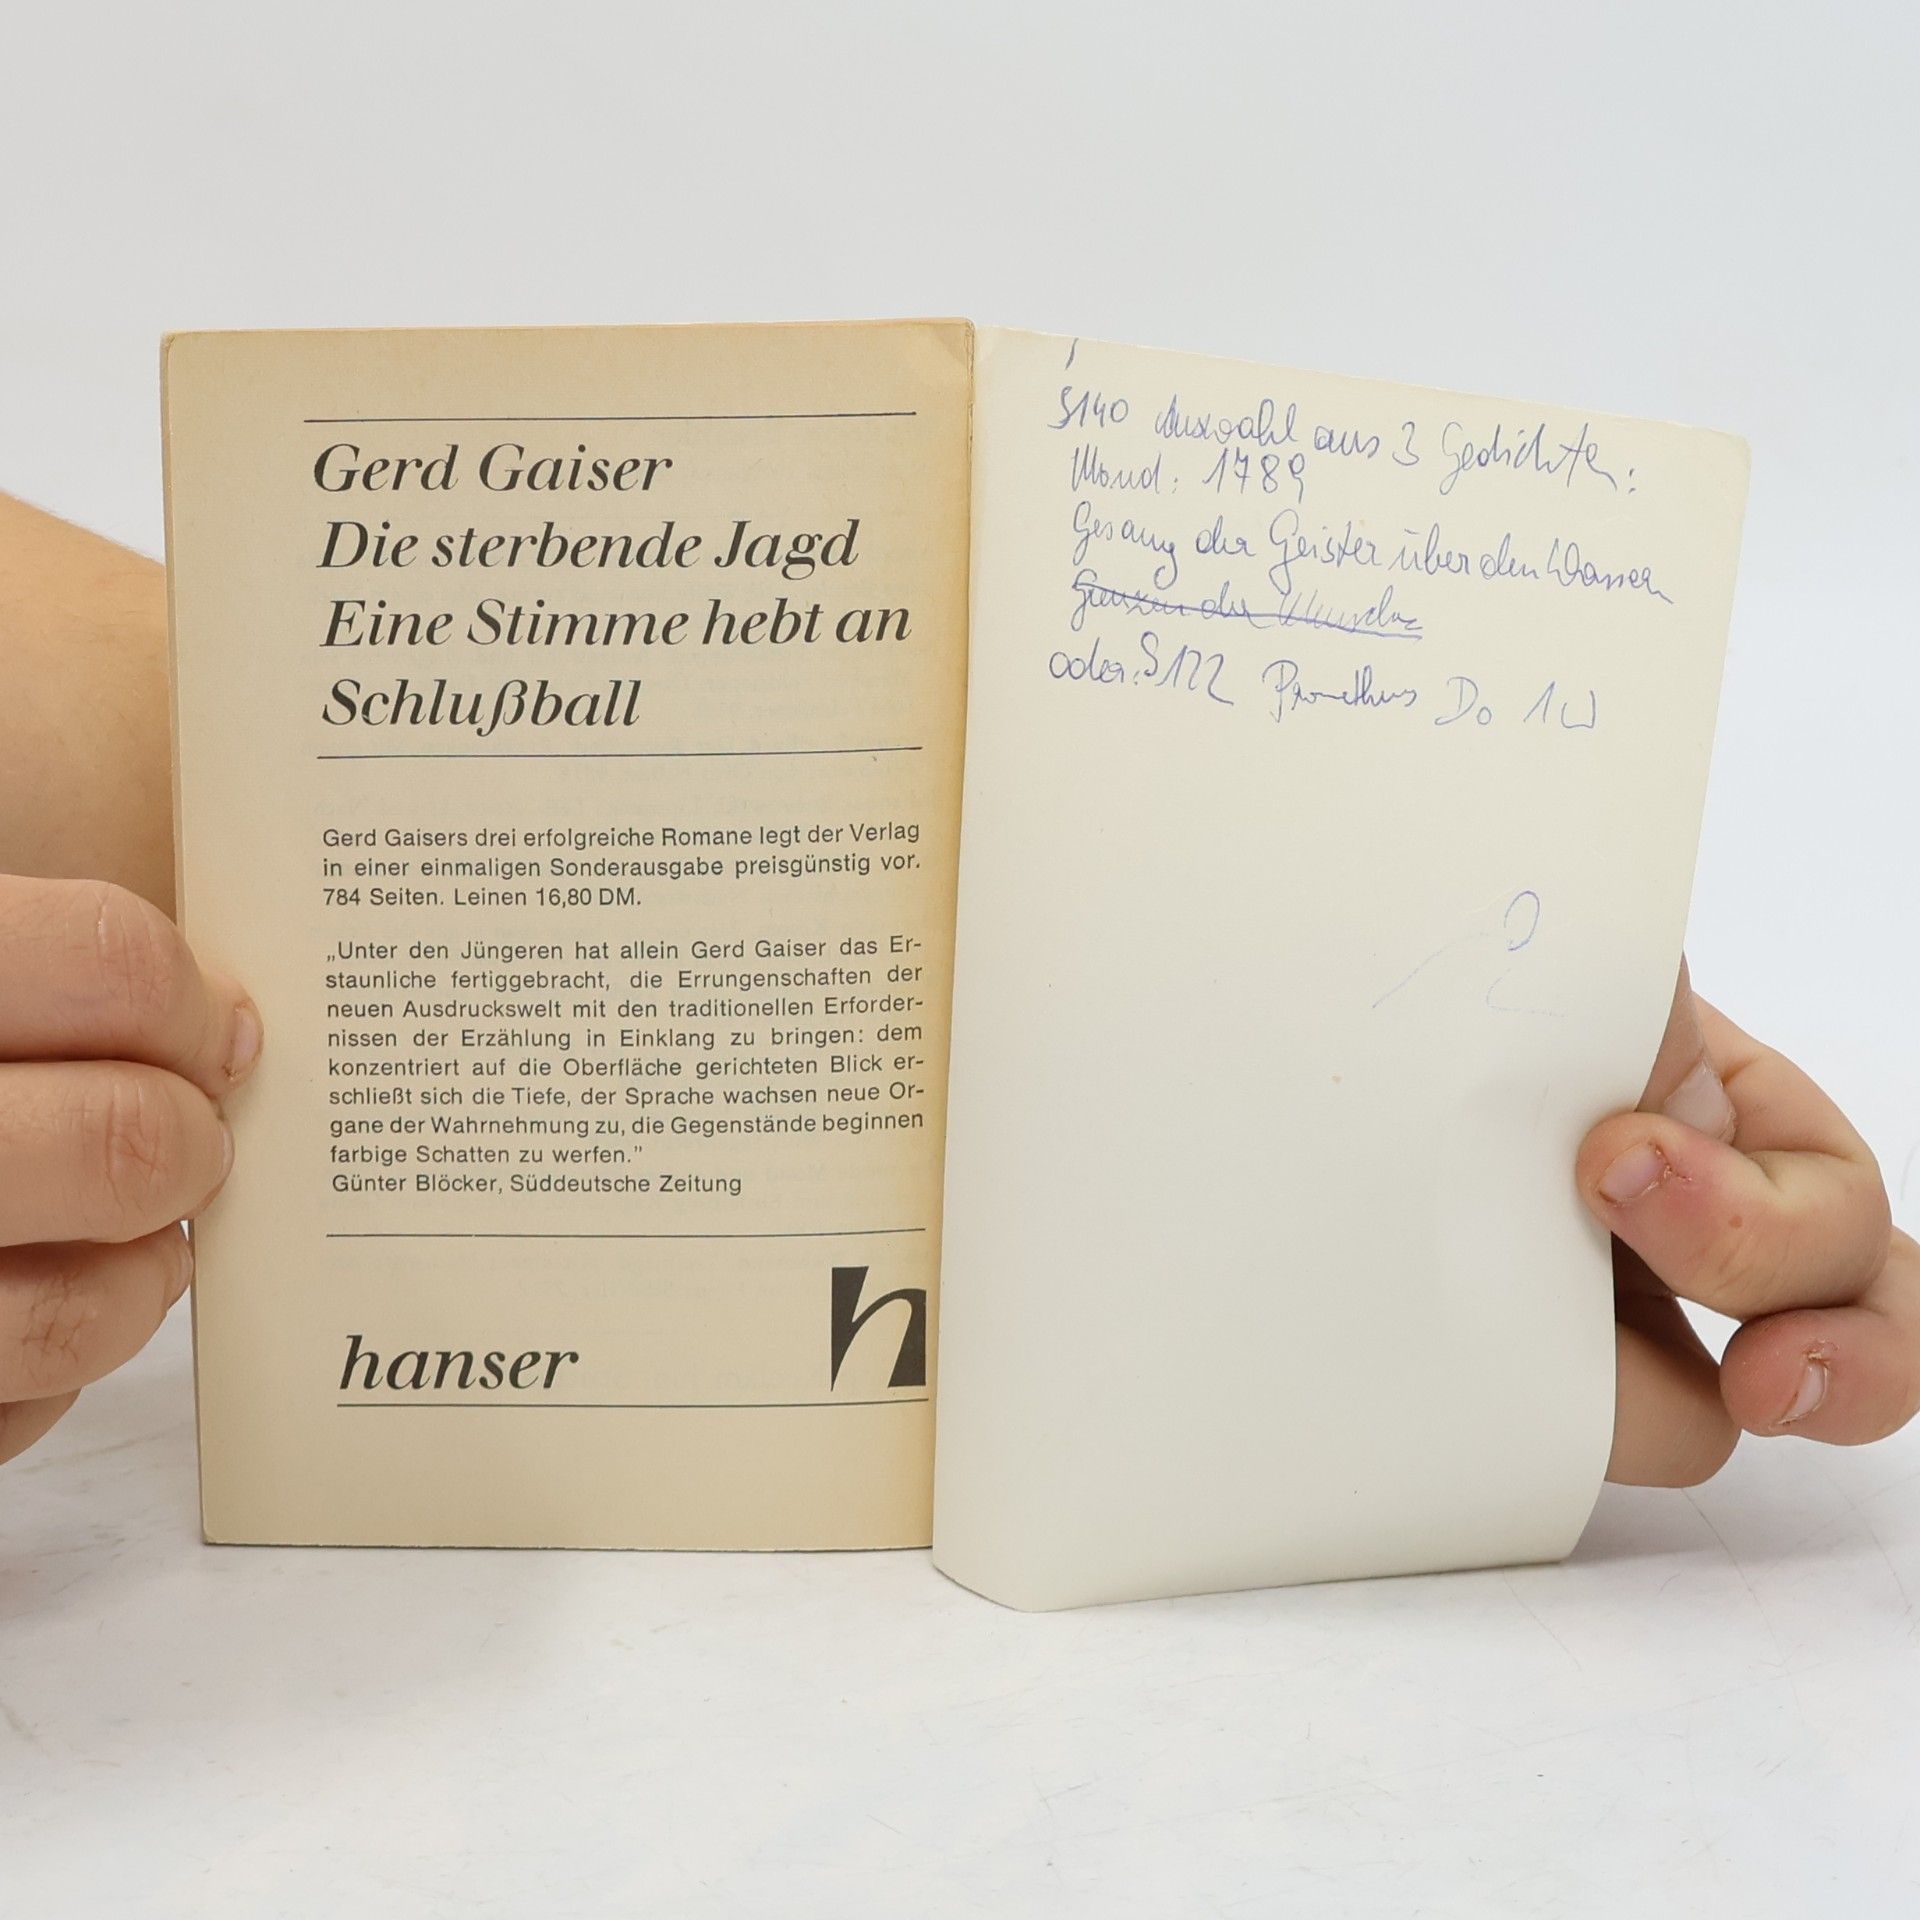 Gerd Gaiser
Die sterbende Jagd
Eine Stimme hebt an
Schlußball
Gerd Gaisers drei erfolgreiche Romane legt der Verlag
in einer einmaligen Sonderausgabe preisgünstig vor.
784 Seiten. Leinen 16,80 DM.
„Unter den Jüngeren hat allein Gerd Gaiser das Er-
staunliche fertiggebracht, die Errungenschaften der
neuen Ausdruckswelt mit den traditionellen Erforder-
nissen der Erzählung in Einklang zu bringen: dem
konzentriert auf die Oberfläche gerichteten Blick er-
schließt sich die Tiefe, der Sprache wachsen neue Or-
gane der Wahrnehmung zu, die Gegenstände beginnen
farbige Schatten zu werfen.”
Günter Blöcker, Süddeutsche Zeitung
hanser
S140 Auswahl aus 3 Gedichten:
Mond: 1789
Gesang der Geister über den Wassern
Grenzen der
oder: S122 Prometheus Do 1W